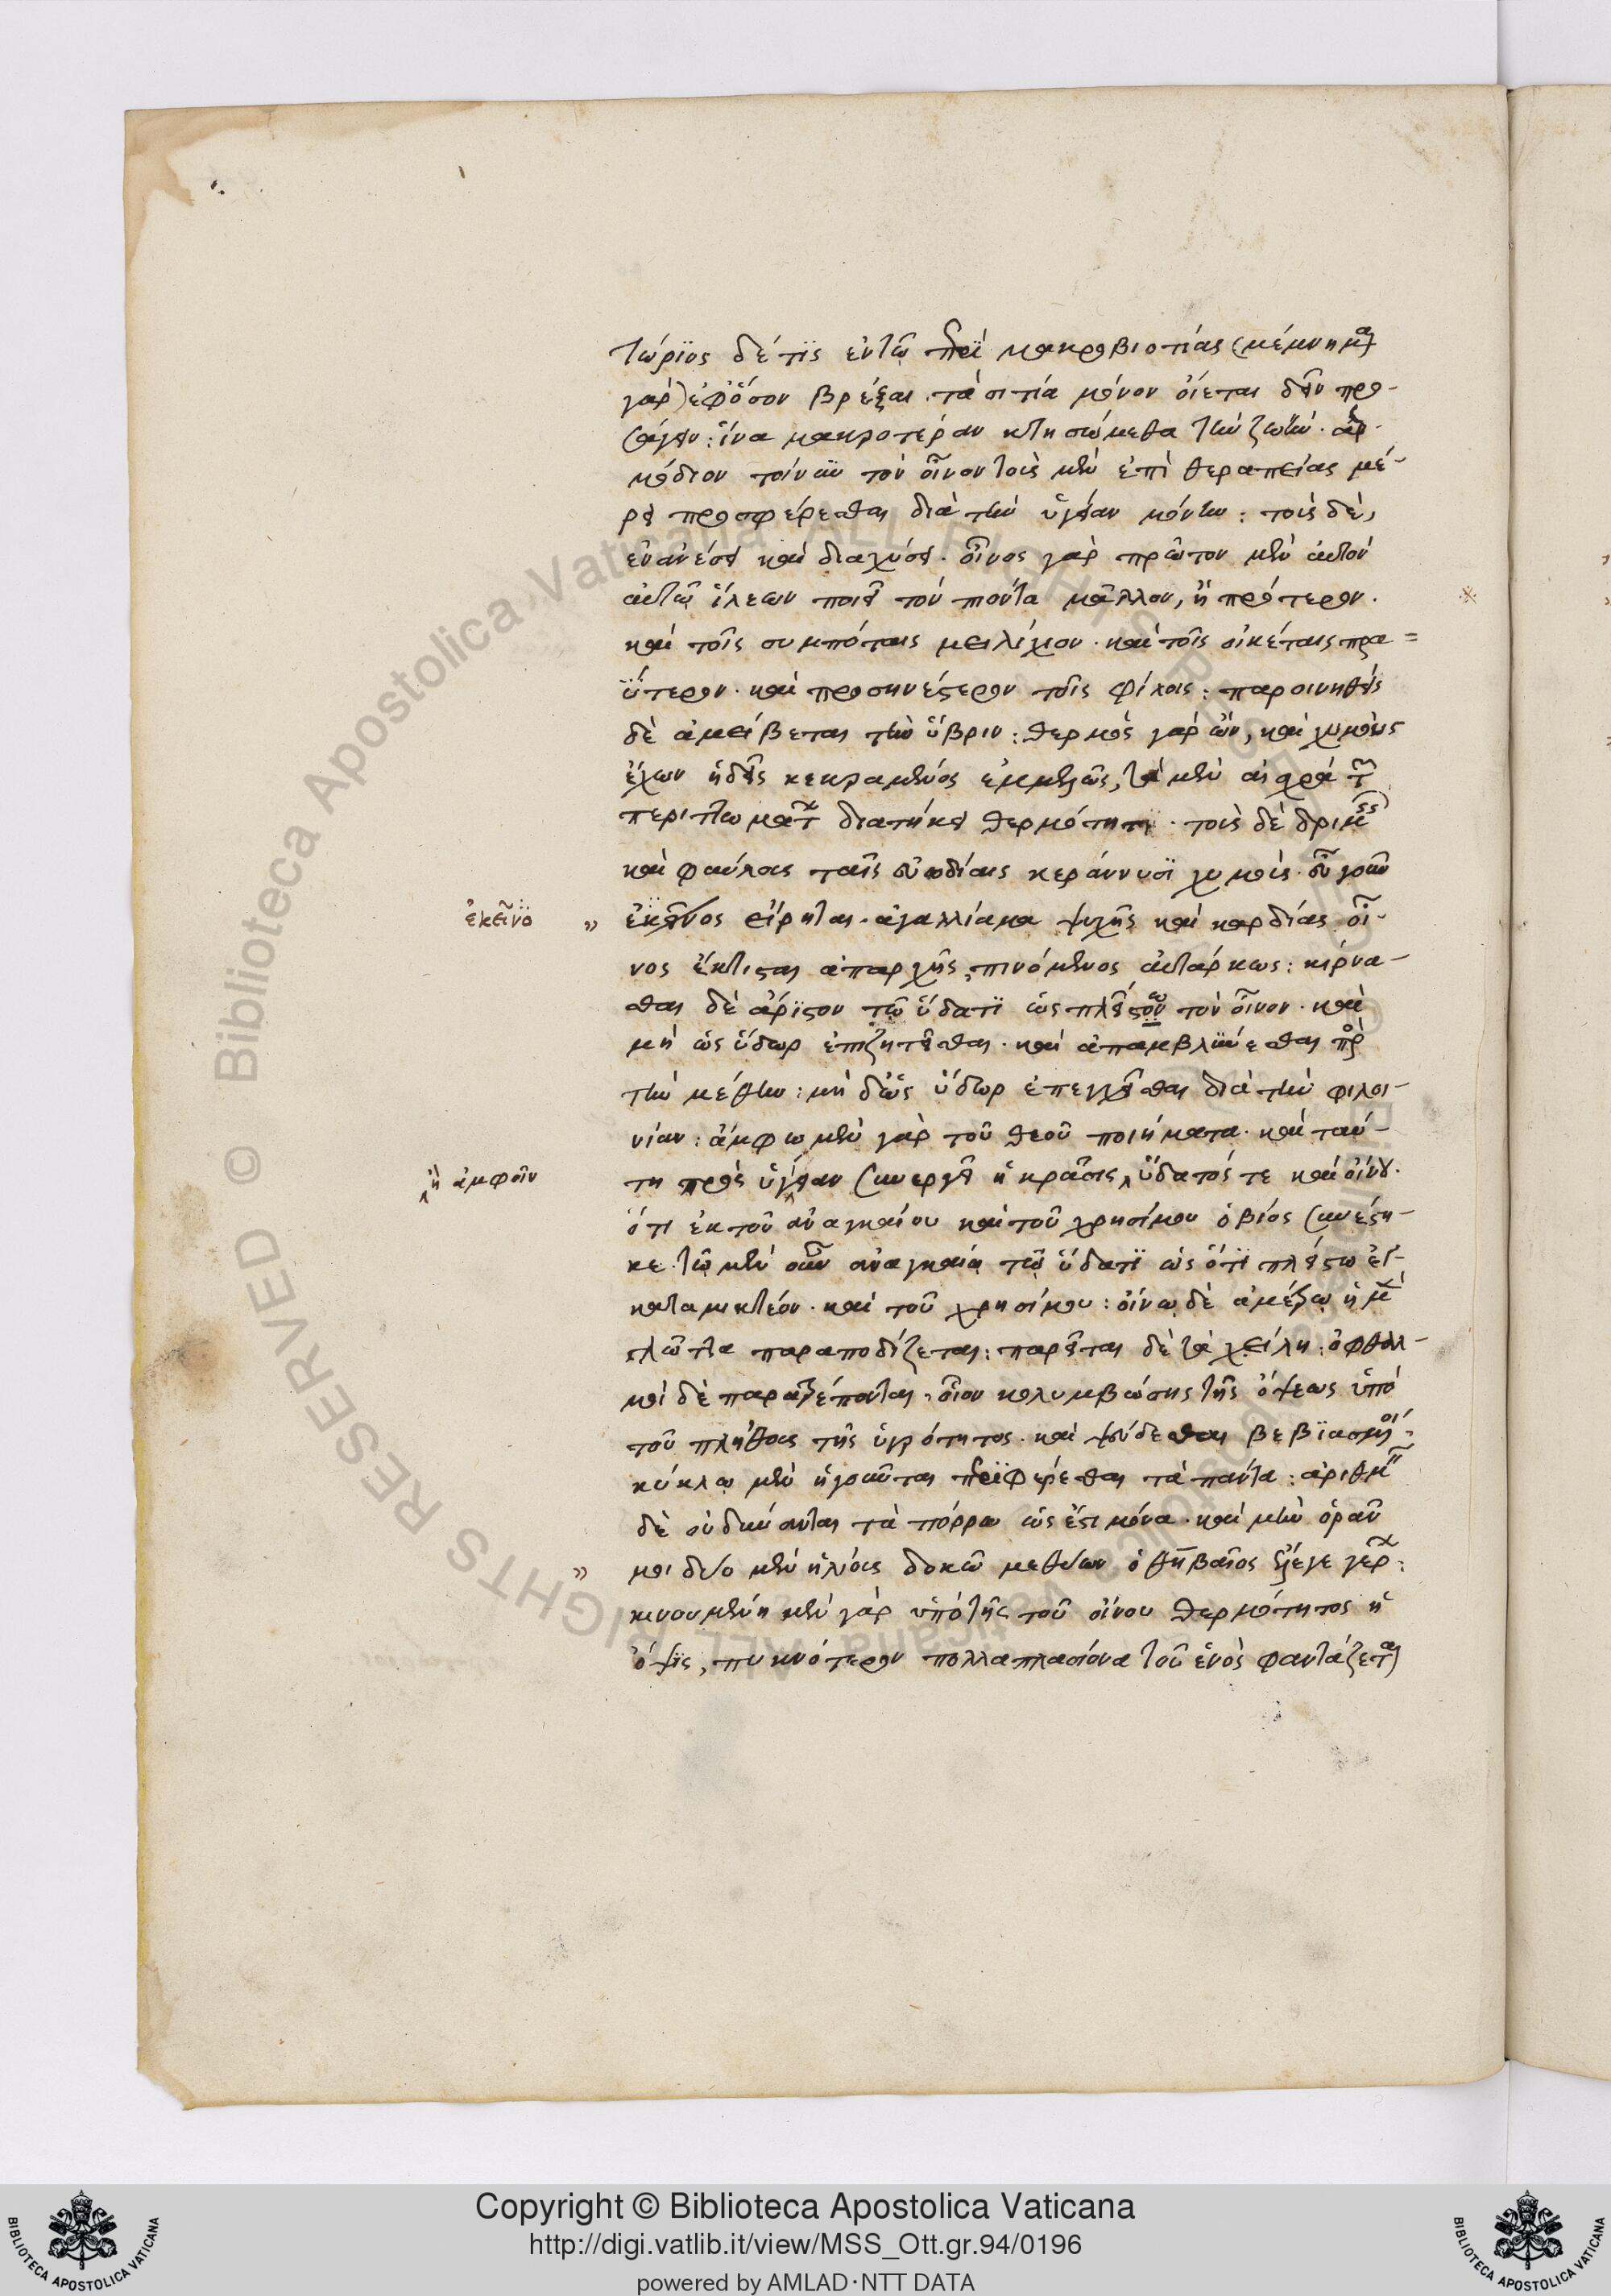 τώριος δέ τις ἐν τῶ περὶ μακροβιοτίας (μέμνημαι
γὰρ) ἐφόσον βρέξαι τὰ σιτία μόνον οἴεται δεῖν προ-
σάγειν: ἵνα μακροτέραν κτησώμεθα τὴν ζωήν. ἁρ-
μόδιον τοίνυν τὸν οἶνον τοῖς μὲν ἐπὶ θεραπείας μέ-
ρει προσφέρεσθαι διὰ τὴν ὑγείαν μόνην: τοῖς δὲ,
ἐν ἀνέσει καὶ διαχύσει. οἶνος γὰρ πρῶτον μὲν αὐτὸν
αὐτῶ ἵλεων ποιεῖ τὸν πιόντα μᾶλλον, ἢ πρότερον.
καὶ τοῖς συμπόταις μειλίχιον. καὶ τοῖς οἰκέταις πρα=
ΰτερον. καὶ προσηνέστερον τοῖς φίλοις: παροινηθεὶς
δὲ ἀμείβεται τὴν ὕβριν: θερμὸς γὰρ ὢν, καὶ χυμοὺς
ἔχων ἡδεῖς κεκραμένος ἐμμελῶς, τὰ μὲν αἰσχρὰ τῶν
περιττωμάτων διατήκει θερμότητι. τοὺς δὲ δριμεῖς
καὶ φαύλους ταῖς εὐωδίαις κεράννυσι χυμούς. εὖ γοῦν
ἐκεῖνος εἴρηται. ἀγαλλίαμα ψυχῆς καὶ καρδίας οἶ-
ἐκεῖνο
νος ἔκτισται ἀπαρχῆς, πινόμενος αὐτάρκως: κίρνα-
σθαι δὲ ἄριστον τῶ ὕδατι ὡς πλείστω τὸν οἶνον. καὶ
μὴ ὡς ὕδωρ ἐπιζητεῖσθαι. καὶ ἀπαμβλύνεσθαι πρὸς
τὴν μέθην: μὴ δ' ὡς ὕδωρ ἐπεγχεῖσθαι διὰ τὴν φιλοι-
νίαν: ἄμφω μὲν γὰρ τοῦ θεοῦ ποιήματα. καὶ ταύ-
τη πρὸς ὑγείαν συνεργεῖ ἡ κρᾶσις, ὕδατός τε καὶ οἴνου.
ἡ ἀμφοῖν
ὅτι ἐκ τοῦ ἀναγκαίου καὶ τοῦ χρησίμου ὁ βίος συνέστη-
κε. τῶ μὲν οὖν ἀναγκαίω τῶ ὕδατι ὡς ὅτι πλείστω ἐγ-
καταμικτέον. καὶ τοῦ χρησίμου: οἴνω δὲ ἀμέτρω ἡ μὲν
γλῶττα παραποδίζεται: παρεῖται δὲ τὰ χείλη: ὀφθαλ-
μοὶ δὲ παρατρέπονται. οἷον κολυμβώσης τῆς ὄψεως ὑπὸ
τοῦ πλήθους τῆς ὑγρότητος. καὶ ψεύδεσθαι βεβιασμένοι,
κύκλω μὲν ἡγοῦνται περιφέρεσθαι τὰ πάντα: ἀριθμεῖν
δὲ οὐ δύνανται τὰ πόρρω ὡς ἔστι μόνα. καὶ μὴν ὁρᾶν
μοι δύο μὲν ἡλίους δοκῶ μεθύων ὁ θηβαῖος ἔλεγε γέρων:
κινουμένη μὲν γὰρ ὑπὸ τῆς τοῦ οἴνου θερμότητος ἡ
ὄψις, πυκνότερον πολλαπλασίονα τοῦ ἑνὸς φαντάζεται
Copyright © Biblioteca Apostolica Vaticana
http://digi.vatlib.it/view/MSS_Ott.gr.94/0196
powered by AMLAD·NTT DATA
BIBLIOTECA APOSTOLICA VATICANA
BIBLIOTECA APOSTOLICA VATICANA
© Biblioteca Apostolica Vaticana ALL RIGHTS RESERVED